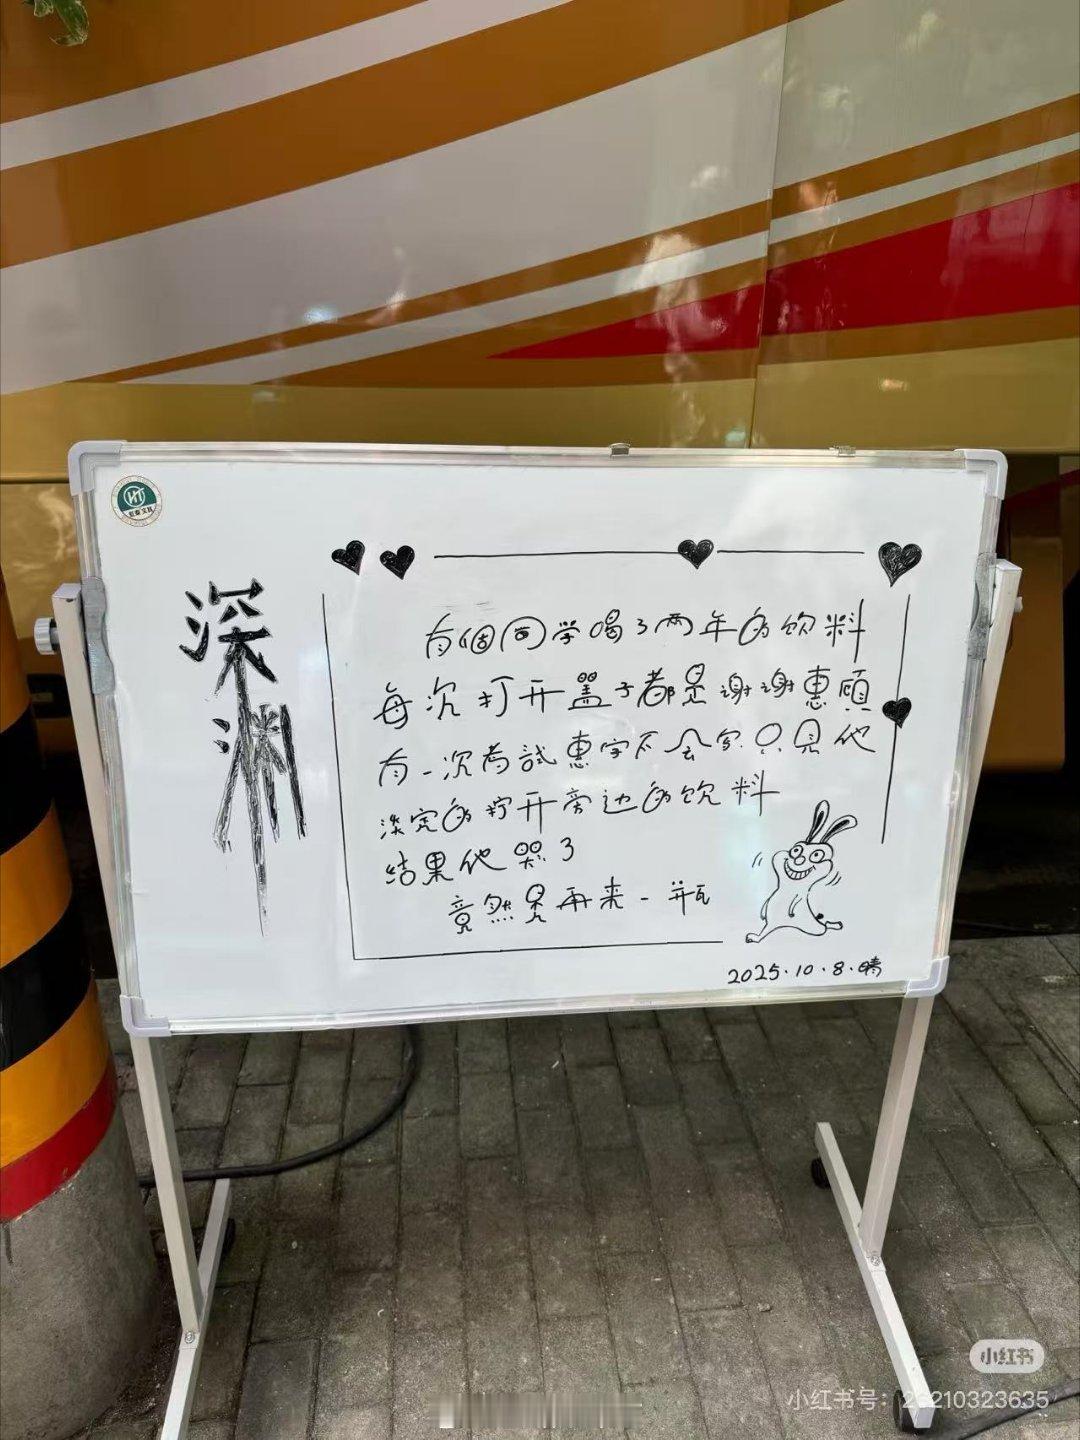 深渊
有個同学喝了两年的饮料
每次打开盖子都是谢谢惠顾
有一次考試惠字不会写只見他
淡定的拧开旁边的饮料
结果他哭了
竟然是再来一瓶
2025.10.8.晴
小红书
小红书号：26210323635